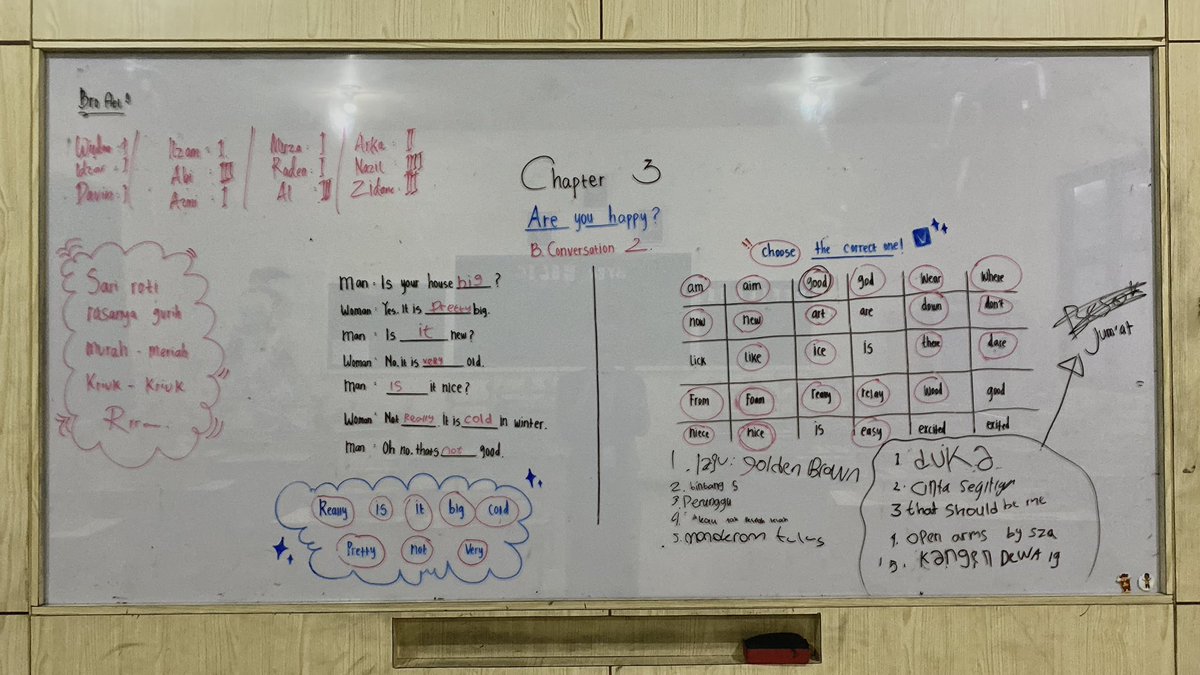 Bro Abi :
Izam : I
Idzar : I
Abi : III
Davin : I
Azmi : I
Mirza : I
Raden : I
Al : III
Arka : II
Nazil : IIII
Zidane : III
Chapter 3
Are you happy?
B. Conversation 2.
!! choose the correct one! V
Sari roti
rasanya gurih
murah - meriah
Kriuk - Kriuk
Man : Is your house big ?
Woman : Yes. It is Pretty big.
Man : Is it new?
Woman : No, it is very old.
Man : is it nice?
Woman : Not Really It is cold in winter.
Man : Oh no. thats not good.
Really is it big cold
Pretty not Very
am aim good god wear where
now new art are down don't
lick like ice is there dare
From Foam really relay wood good
niece nice is easy excited exited
Besok
Jum'at
1. lagu : golden Brown
2. bintang 5
3. Perunggu
4.
5. monokrom tulus
1. duka
2. cinta segitiga
3 that should be me
4. open arms by sza
5. Kangen DEWA 19